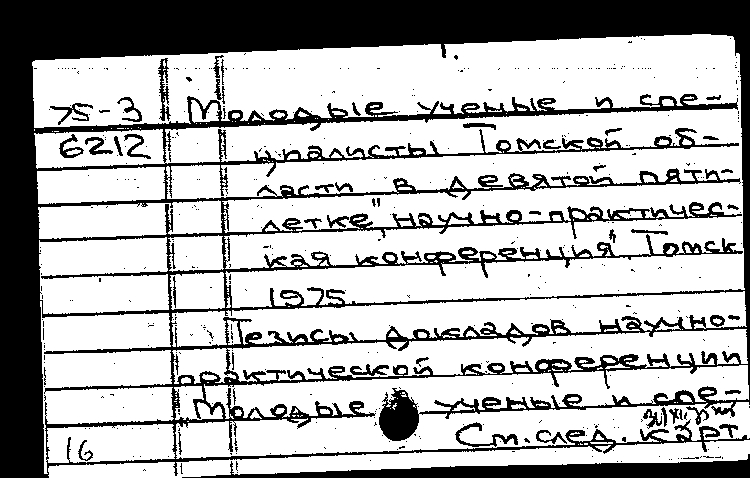 1.
75-3 Молодые ученые и спе-
6212 циалисты Томской об-
ласти в девятой пяти-
летке", научно-практичес-
кая конференция". Томск
1975.
Тезисы докладов научно-
практической конференции
"Молодые ученые и спе-
16 См. след. карт.